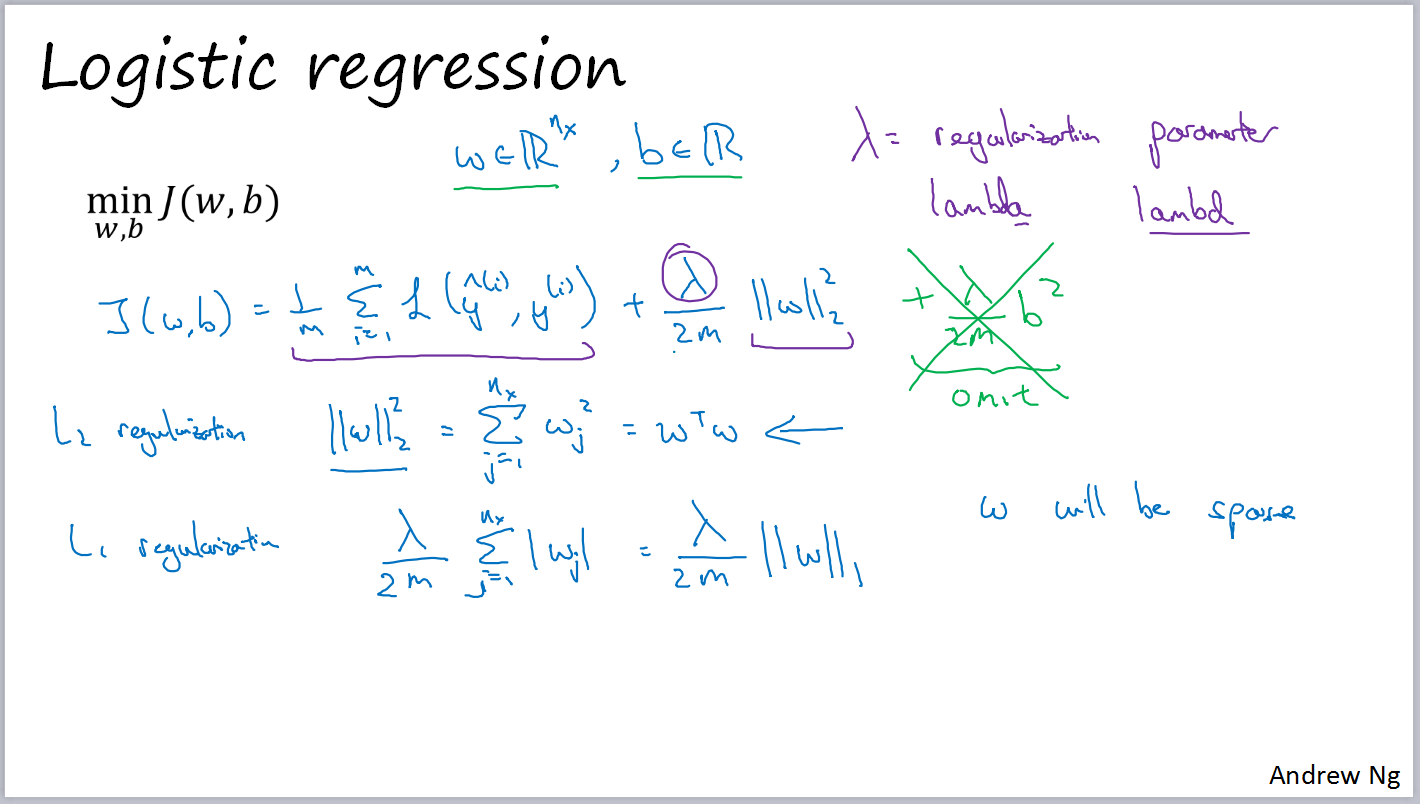 Logistic regression
w ∈ ℝ^{n_x}, b ∈ ℝ
λ = regularization parameter
lambda lambd
min_{w,b} J(w, b)
J(w,b) = \frac{1}{m} \sum_{i=1}^{m} ℒ(ŷ^{(i)}, y^{(i)}) + \frac{λ}{2m} ||w||_2^2
+ \frac{λ}{2m} b^2
omit
L_2 regularization ||w||_2^2 = \sum_{j=1}^{n_x} w_j^2 = w^T w ←
L_1 regularization \frac{λ}{2m} \sum_{j=1}^{n_x} |w_j| = \frac{λ}{2m} ||w||_1
w will be sparse
Andrew Ng